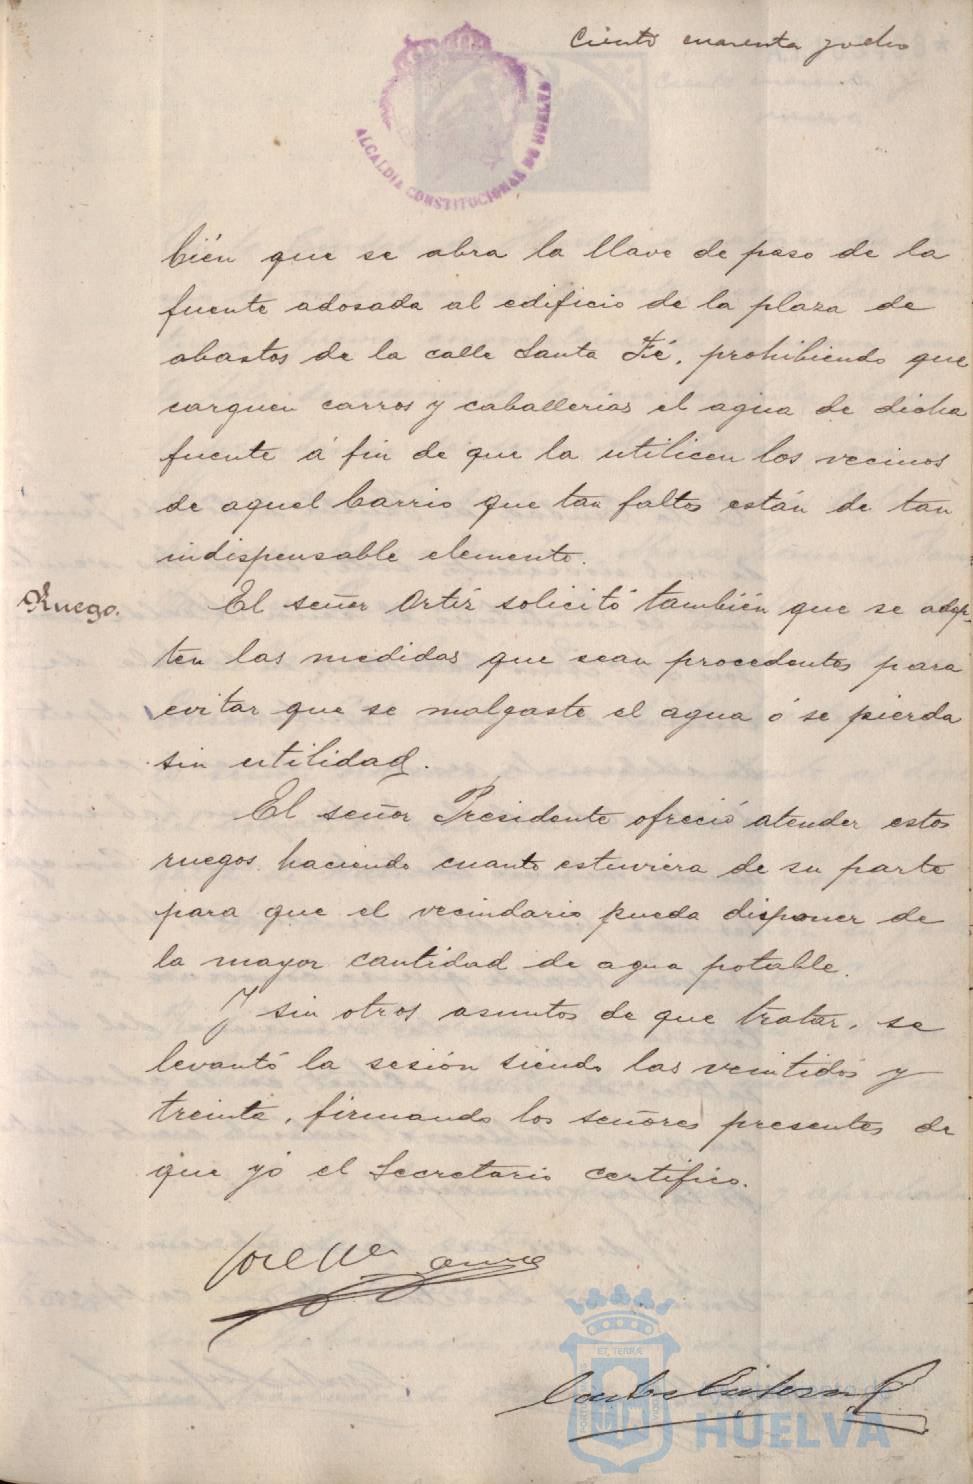 Ciento cuarenta y ocho
ALCALDIA CONSTITUCIONAL DE HUELVA
bién que se abra la llave de paso de la
fuente adosada al edificio de la plaza de
abastos de la calle Santa Fé, prohibiendo que
carguen carros y caballerias el agua de dicha
fuente á fin de que la utilicen los vecinos
de aquel barrio que tan faltos están de tan
indispensable elemento.
Ruego.
El señor Ortíz solicitó también que se adop-
ten las medidas que sean procedentes para
evitar que se malgaste el agua ó se pierda
sin utilidad.
El señor Presidente ofreció atender estos
ruegos haciendo cuanto estuviera de su parte
para que el vecindario pueda disponer de
la mayor cantidad de agua potable.
Y sin otros asuntos de que tratar, se
levantó la sesión siendo las veintidós y
treinta, firmando los señores presentes de
que yó el Secretario certifico.
José Mª
ET TERRÆ
Ayuntamiento de
HUELVA